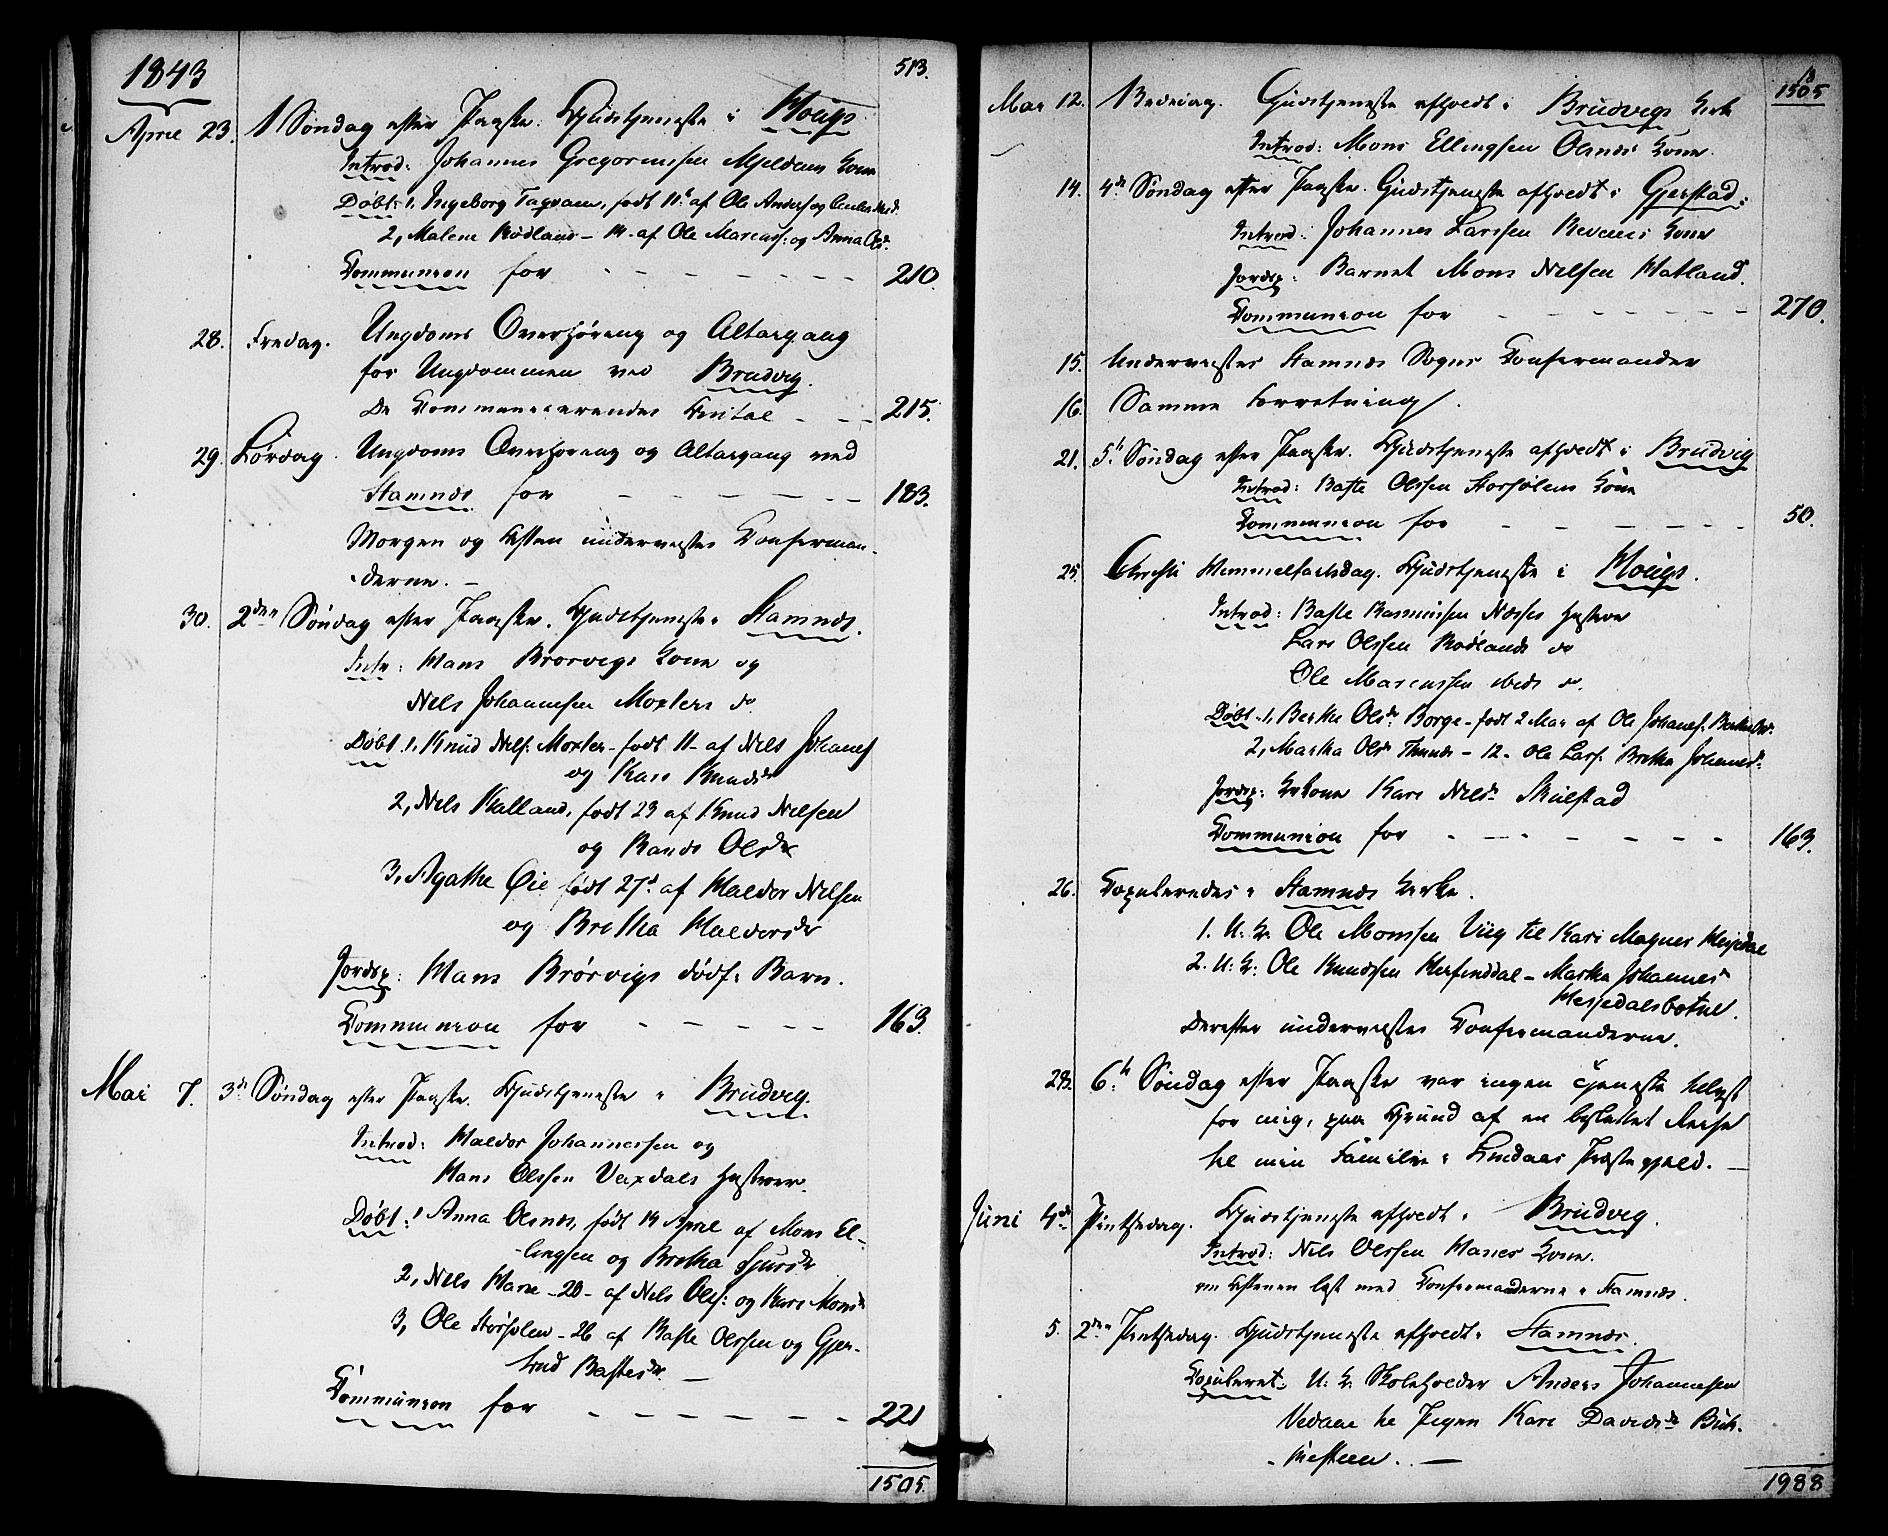 1843
513.
April 23. 1 Søndag efter Paaske. Gudstjeneste i Hougs
Introd: Johannes Gregoriussen Mjeldems Kone
Døbt: 1, Ingeborg Tagvam, født 11t af Ole Anders og
2, Malene Rødland - 14 - af Ole Marcuss: og Anna Olsdr
Communion for - - - - - - - 210.
28. Fredag. Ungdoms Overhøring og Altargang
for Ungdommen ved Brudvig.
De Communicerendes Antal - - - 215.
29. Lørdag. Ungdoms Overhøring og Altargang ved
Stamnæs for - - - - - - 183.
Morgen og Aften undervistes Confirman-
-derne. -
30. 2den Søndag efter Paaske. Gudstjeneste i Stamnæs.
Intr: Hans Brørvigs Kone og
Nels Johannesen Moxters do
Døbt 1, Knud Nels: Moxter - født 11 - af Nels Johanness
og Kari Knudsdr
2, Nels Kalland, født 23 af Knud Nelsen
og Randi Olsdr
3, Agathe Øie født 27d af Haldor Nelsen
og Bretha Haldorsdr
Jordsp: Hans Brørvigs dødf: Barn.
Communion for - - - - - 163.
Mai 7. 3de Søndag efter Paaske. Gudstjeneste i Brudvig.
Introd: Haldor Johannessen og
Hans Olssen Vaxdals Hustruer.
Døbt: 1 Anna Olsnæs, født 14 April af Mons El-
-lingsen og Bretha Sjursdr
2, Nels Hane - 20 - af Nels Olss: og Kari Monsdr
3, Ole Storsolen - 26 af Baste Olssen og Gjer-
trud Bastesdr. -
Communion for - - - - - - 221
1505.
1505
Mai 12. 1 Bededag. Gudstjeneste afholdt i Brudvigs Kirk
Introd: Mons Ellingsen Olsnæs Kone.
14. 4de Søndag efter Paaske. Gudstjeneste afholdt i Gjerstad.
Introd: Johannes Larssen Revems Kone
Jordsp: Barnet Mons Nelsen Hatland.
Communion for - - - - - - - 270.
15. Undervistes Stamnæs Sogns Confirmander
16. Samme Forretning.
21. 5te Søndag efter Paaske. Gudstjeneste afholdt i Brudvig
Introd: Baste Olssen Storsolens Kone
Communion for - - - - - - 50.
25. Christi Himmelfartsdag. Gudstjeneste i Hougs.
Introd: Baste Rasmussen Næsses Hustrue
Lars Olssen Rødlands do
Ole Marcussen ibids do.
Døbt 1, Berthe Olsdr Borge - født 2 Mai af Ole Johaness: Berthe Olsdr.
2, Martha Olsdr - 12 - Ole Larss: Bretha Johannesdr
Jordsp: Kone Kari Nelsdr Skulstad
Communion for - - - - - - - 163.
26. Copuleredes i Stamnæs Kirke.
1. U: K. Ole Monssen Viig til Kari Magnesdr Hesjedal
2. U: K: Ole Knudssen Herfinddal - Martha Johannesdr
Hesjedalsbotnen.
Derefter undervistes Confirmanderne.
28. 6te Søndag efter Paaske var ingen Tjeneste helligst
for mig, paa Grund af en besluttet Reise
til min Familie i Lindaas Præstegjeld. -
Juni 4de Pintsedag. Gudstjeneste afholdt i Brudvig.
Introd: Nels Olssen Hanes Kone.
om Aftenen læst med Confirmanderne i Stamnæs.
5. 2den Pintsedag. Gudstjeneste afholdt i Stamnæs.
Copuleret: U: K: Skoleholder Anders Johannesen
Vedaae til Pigen Kari Davidsdr
1988